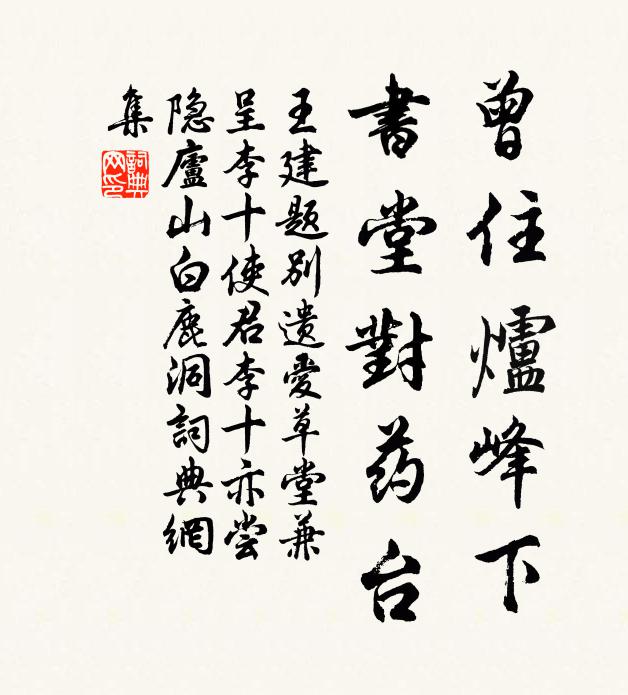 曾住爐峰下
書堂對药台
王建题别遗愛草堂兼
呈李十使君李十亦尝
隐廬山白鹿洞詞典網
集
詞典
网印